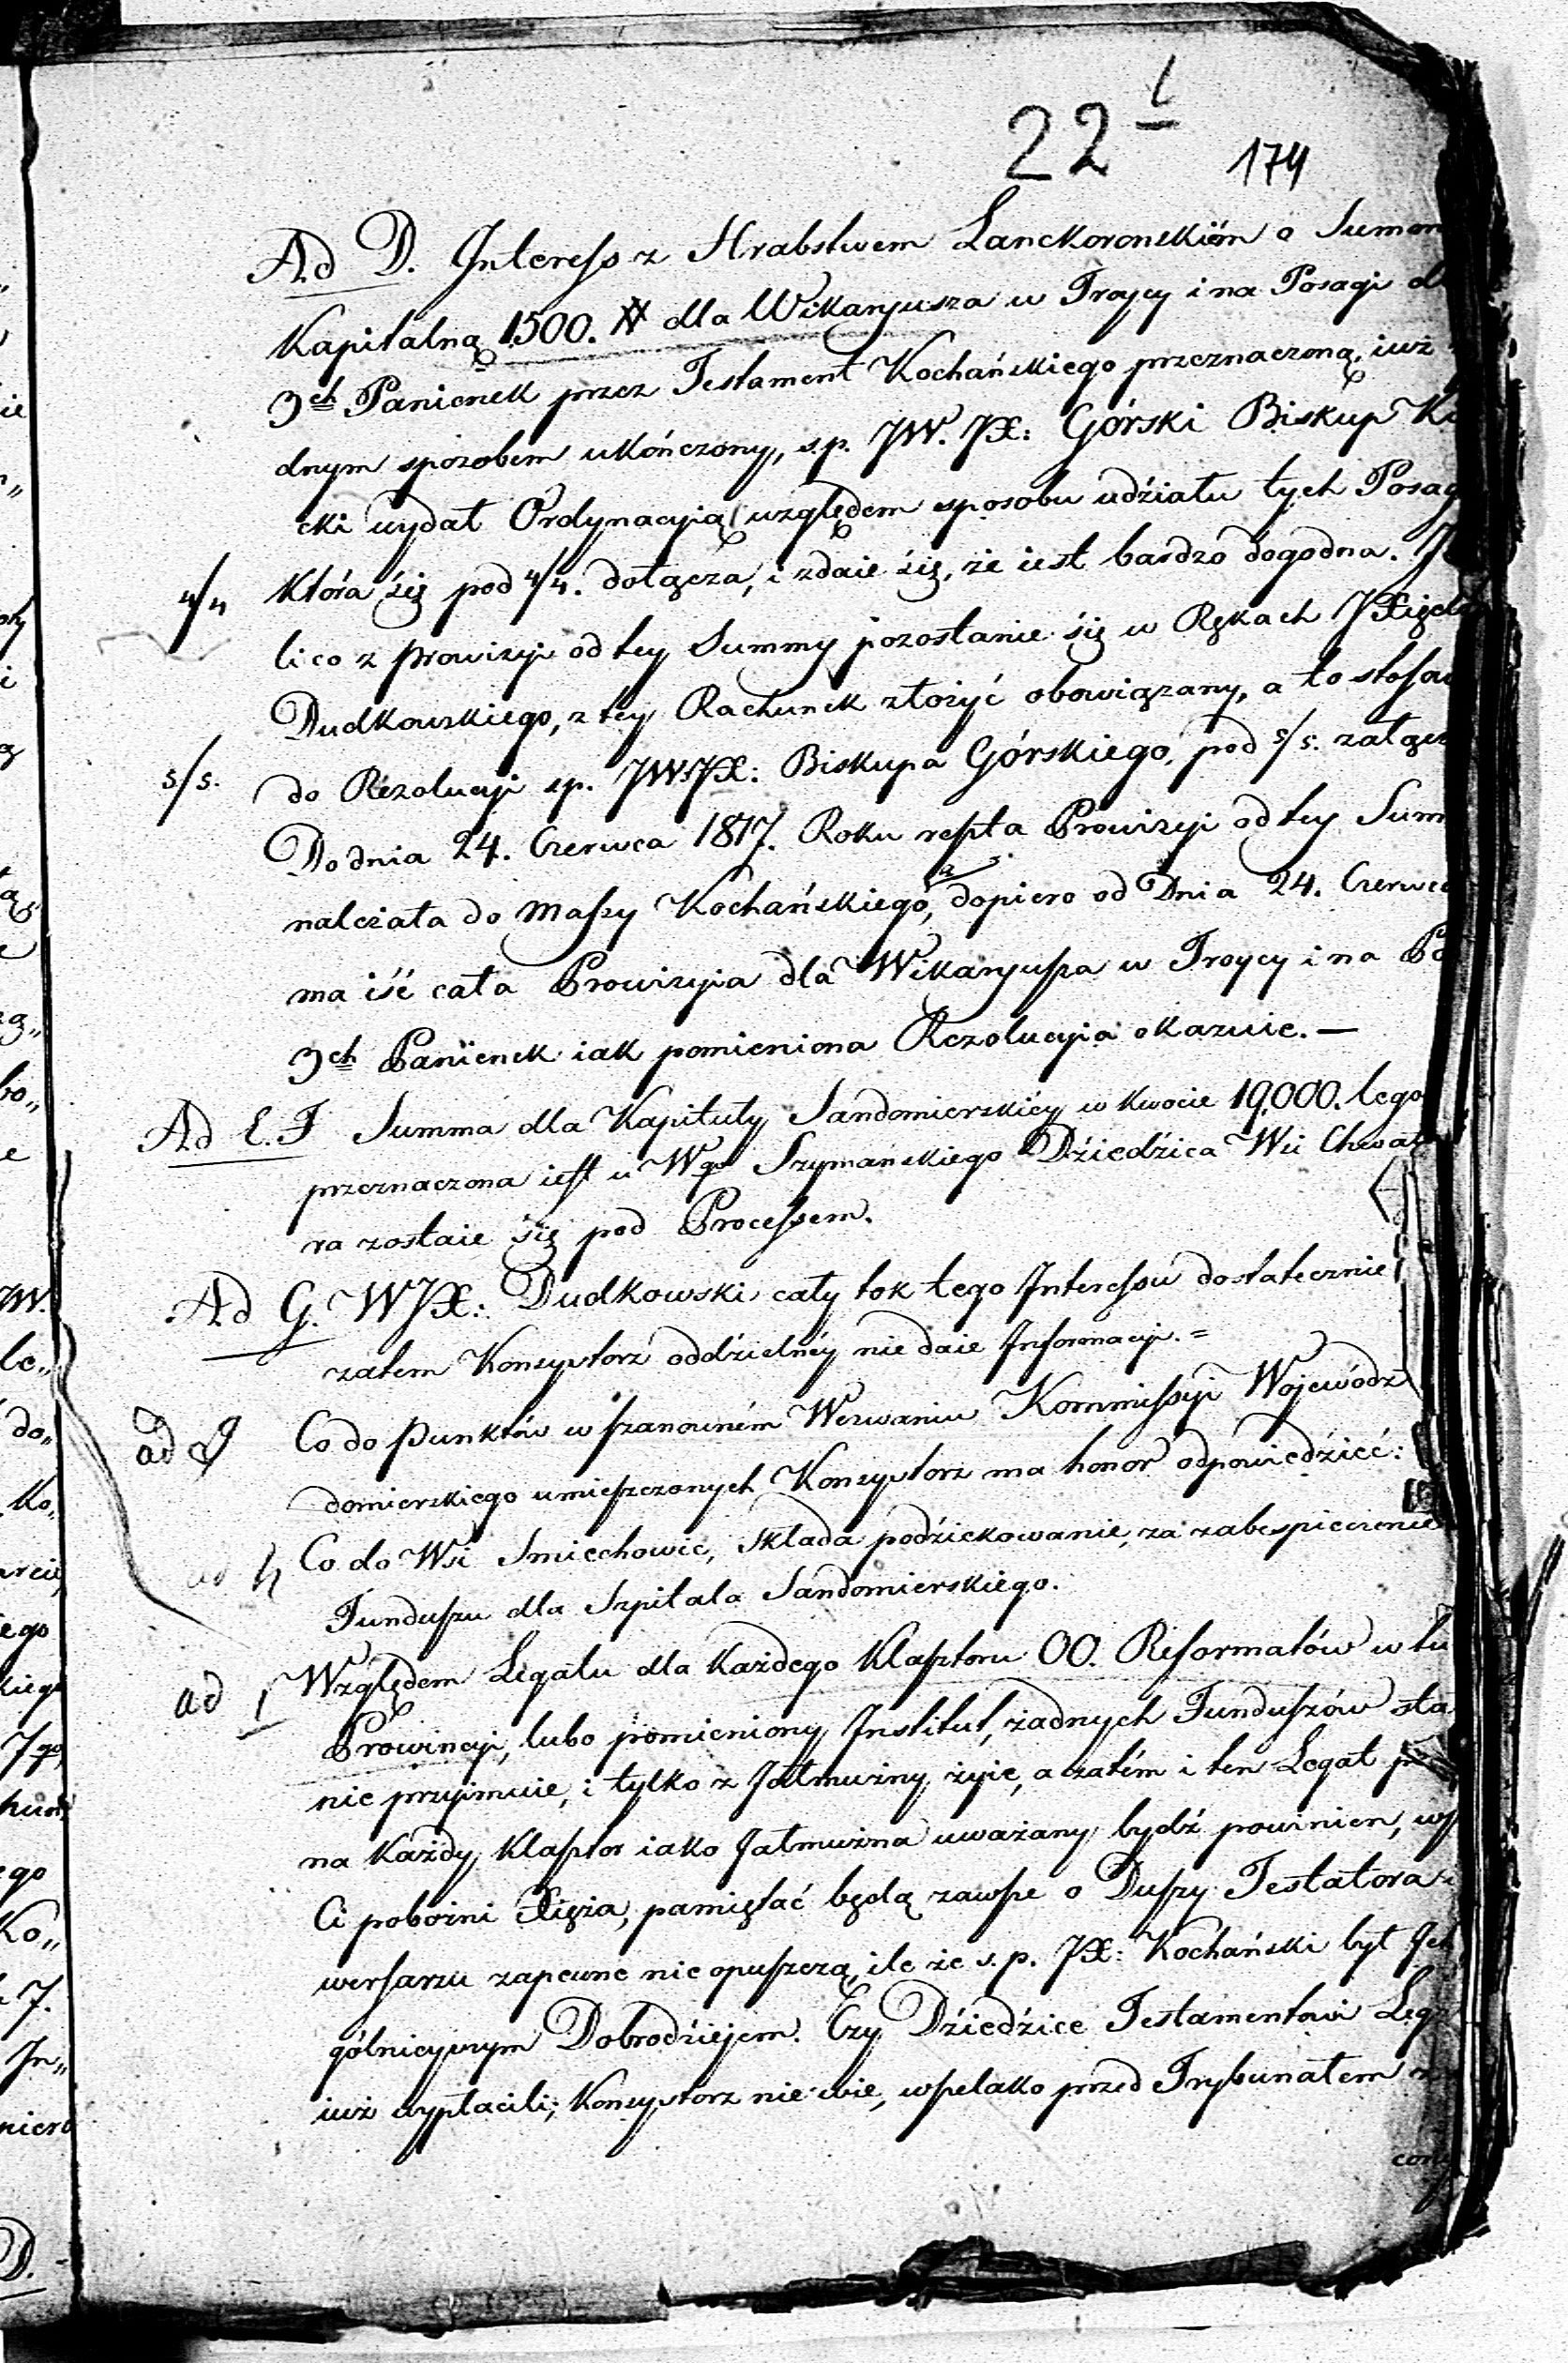 22 1
174
Ad D. Interess z Hrabstwem Lanckoronskiém o Summ
Kapitalną 1500. # dla Wikaryusza w Troycy i na Posagi d
3ch Panienek przez Testament Kochańskiego przeznaczoną, iuż
dnym sposobem ukończony, s.p. JW. JX: Górski Biskup Ki
cki wydał Ordynacyią względem sposobu udźiału tych Posag
4/4 która się pod 4/4. dołącza, i zdaie się, że iest bardzo dogodna. J
li co z prowizyi od tey Summy pozostanie się w Rękach JXięd
Dudkowskiego, z tey Rachunek złożyć obowiązany, a to stosow
s/s. do Rezolucyi sp. JWJX: Biskupa Górskiego, pod s/s. załącz
Do dnia 24. Czerwca 1817. Roku reszta Prowizyi od tey Sum
należała do Massy Kochańskiego, a dopiero od Dnia 24. Czerwca
ma iść cała Prowizyia dla Wikaryusza w Troycy i na Po
3ch Panienek iak pomieniona Rezolucyia okazuie. —
Ad E. F Summa dla Kapituły Sandomierskiéy w kwocie 19,000. lego
przeznaczona iest u Wgo Szymańskiego Dźiedźica Wsi Chwał
ra zostaie się pod Processem.
Ad G. WJX: Dudkowski cały tok tego Interessu dostatecznie
zatem Konsystorz oddzielnéy nie daie Informacyi. =
ad g Co do punktów w szanowném Wezwaniu Kommissyi Wojewódz
domierskiego umieszczonych Konsystorz ma honor odpowiedźieć:
ad h Co do Wsi Smiechowic, składa podźiekowanie, za zabespieczenie
Funduszu dla Szpitala Sandomierskiego.
ad 1 Względem Legatu dla każdego Klasztoru OO. Reformatów w tu
Prowincyi, lubo pomieniony Institut, żadnych Funduszów sta
nie przyimuie, i tylko z Jałmużny żyie, a zatém i ten Legat
na każdy Klasztor iako Jałmużna uważany bydź powinien, ws
Ci pobożni Xięża, pamiętać będą zawsze o Duszy Testatora
wersarzu zapewne nie opuszczą, ile że s.p. JX: Kochański był Ich
gólnieyszym Dobrodźiejem. Czy Dźiedźice Testamentowi Leg
iuż wypłacili; Konsystorz nie wie, wszelako przed Trybunałem